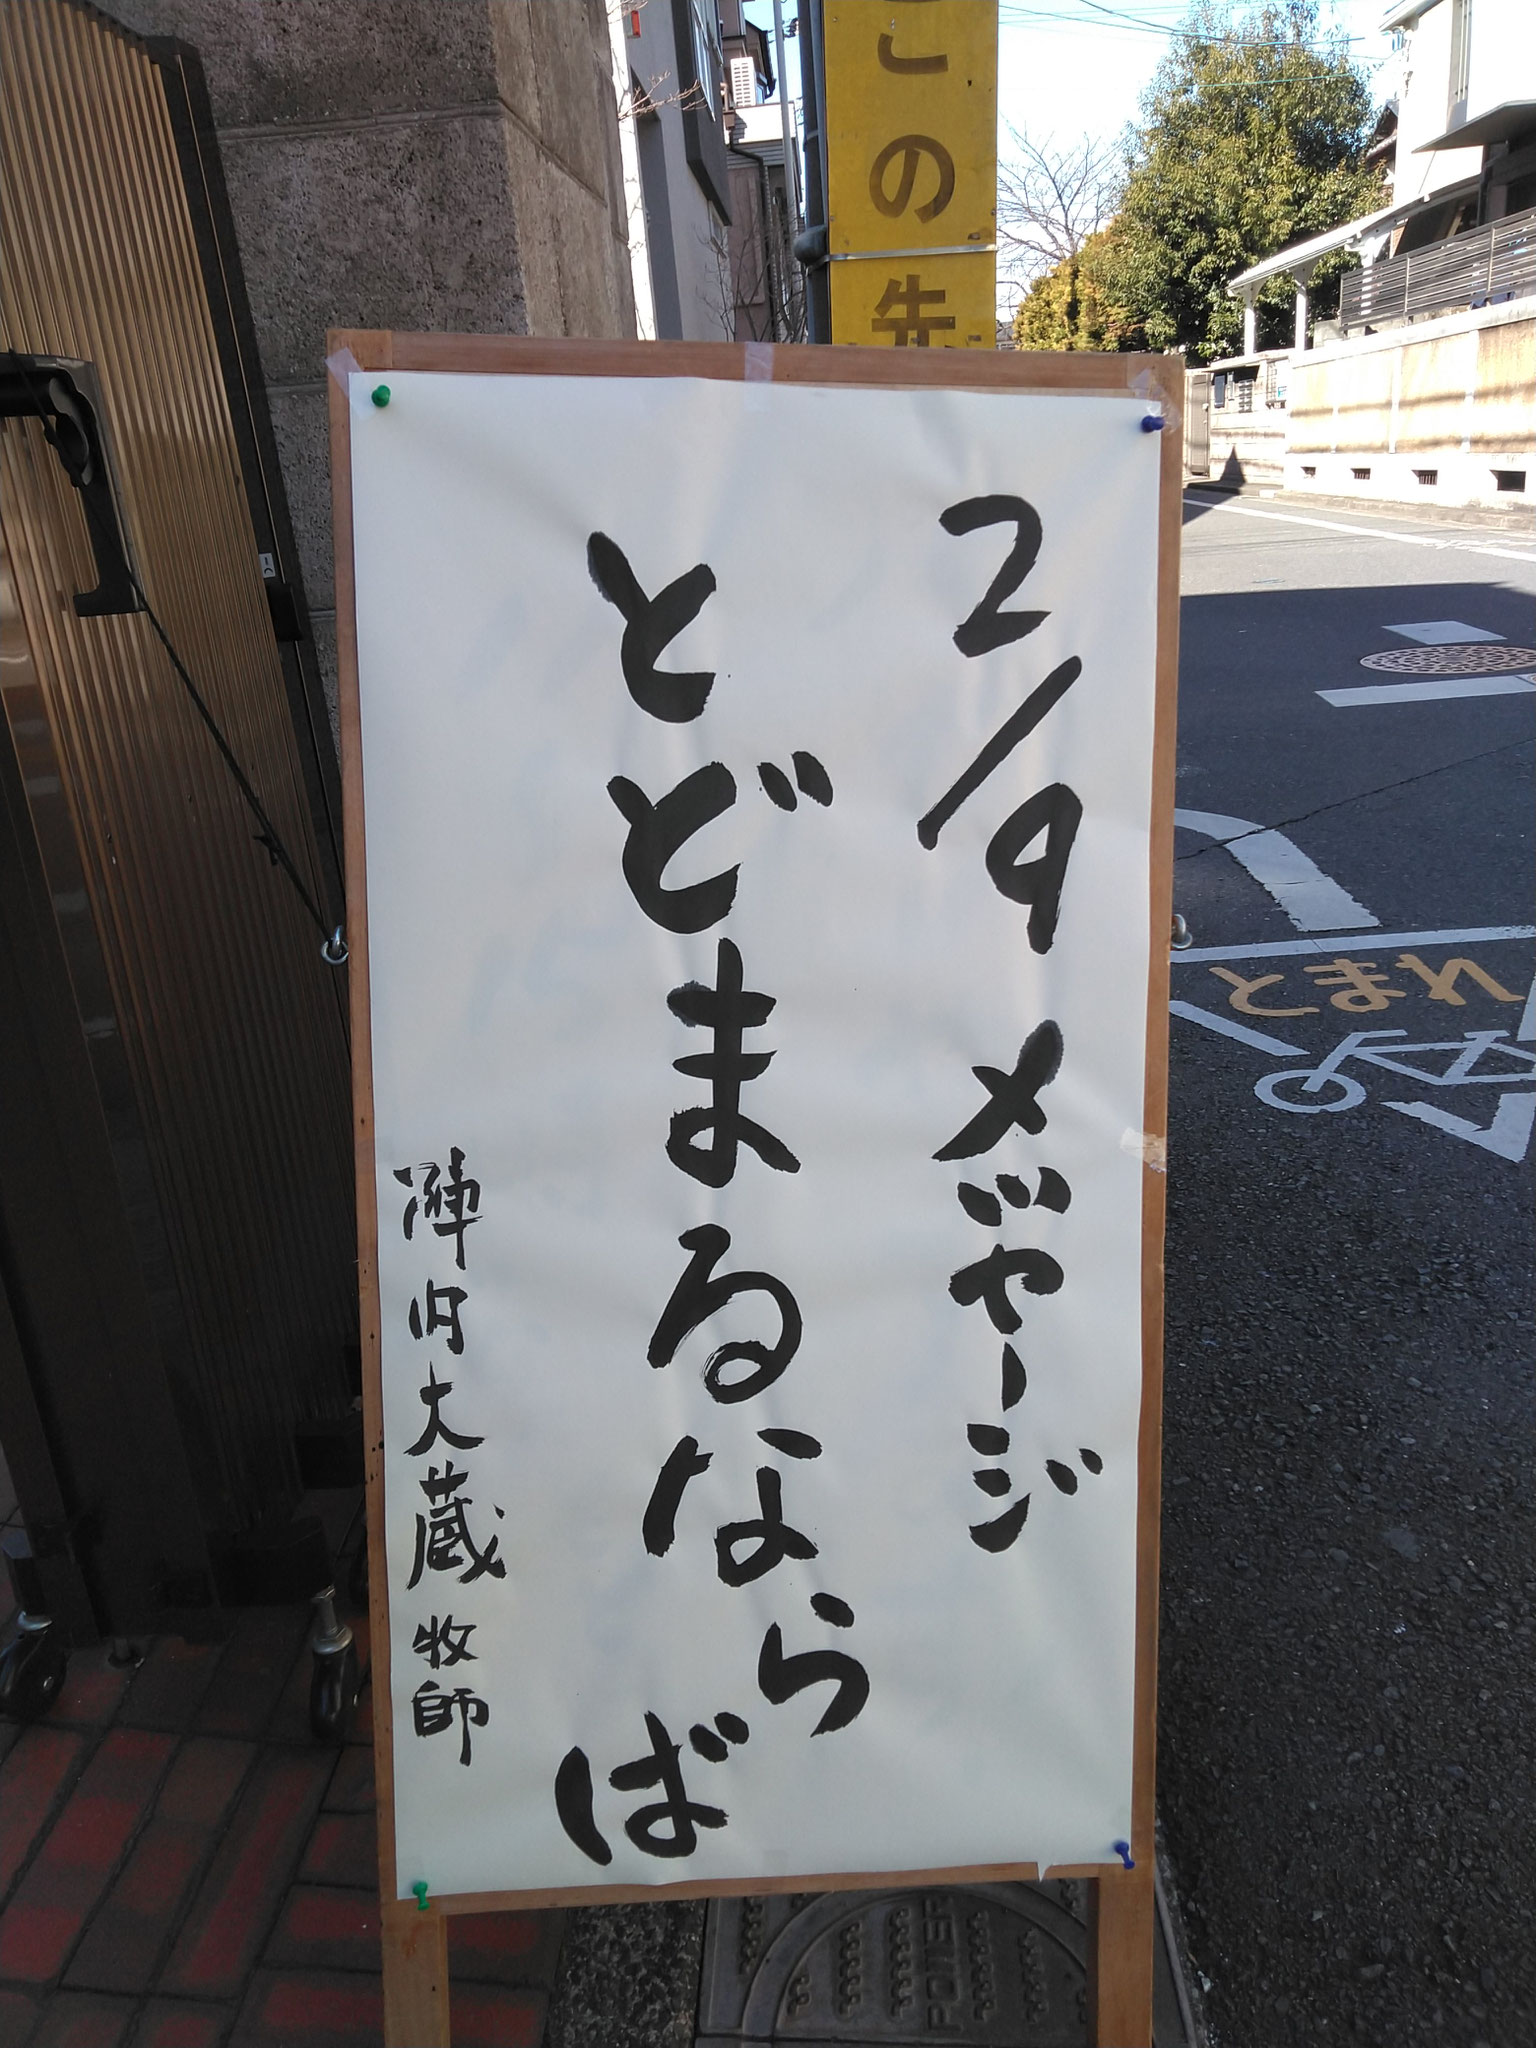 2/9 メッセージ
とどまるならば
陣内大蔵 牧師
この先
とまれ